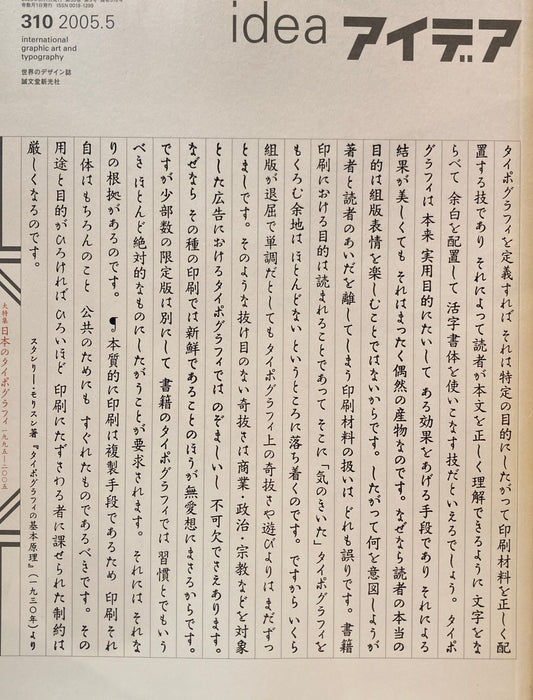 idea アイデア
310 2005.5
international
graphic art and
typography
世界のデザイン誌
誠文堂新光社
タイポグラフィを定義すれば それは特定の目的にしたがって印刷材料を正しく配
置する技であり それによって読者が本文を正しく理解できるように 文字をな
らべて 余白を配置して 活字書体を使いこなす技だといえるでしょう。 タイポ
グラフィは 本来 実用目的にたいして ある効果をあげる手段であり それによる
結果が美しくても それはまったく偶然の産物なのです。なぜなら読者の本当の
目的は組版表情を楽しむことではないからです。 したがって何を意図しようが
著者と読者のあいだを離してしまう印刷材料の扱いは どれも誤りです。書籍
印刷における目的は読まれることであって そこに「気のきいた」タイポグラフィを
もくろむ余地は ほとんどない というところに落ち着くのです。ですから いくら
組版が退屈で単調だとしても タイポグラフィ上の奇抜さや遊びよりは まだずっ
とましです。 そのような抜け目のない奇抜さは 商業・政治・宗教などを対象
とした広告におけるタイポグラフィでは のぞましいし 不可欠でさえあります。
なぜなら その種の印刷では新鮮であることのほうが無愛想にまさるからです。
ですが 少部数の限定版は別にして 書籍のタイポグラフィでは 習慣とでもいう
べき ほとんど絶対的なものにしたがうことが要求されます。 それには それな
りの根拠があるのです。 ¶ 本質的に印刷は複製手段であるため 印刷 それ
自体はもちろんのこと 公共のためにも すぐれたものであるべきです。 その
用途と目的がひろければ ひろいほど 印刷にたずさわる者に課せられた制約は
厳しくなるのです。
スタンリー・モリスン著『タイポグラフィの基本原理』(一九三〇年)より
大特集 日本のタイポグラフィ 一九九五–二〇〇五